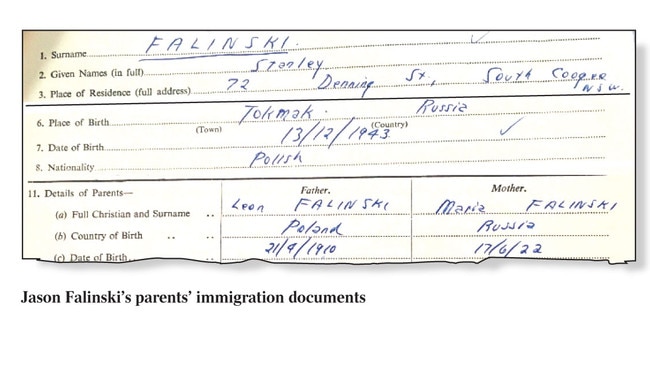 1. Surname FALINSKI.
2. Given Names (in full) Stanley
3. Place of Residence (full address) 72 Denning St, South Coogee NSW.
6. Place of Birth Tokmak. Russia
(Town) (Country)
7. Date of Birth 13/12/1943
8. Nationality Polish
11. Details of Parents— Father. Mother.
(a) Full Christian and Surname .. Leon FALINSKI Maria FALINSKI
(b) Country of Birth .. .. Poland Russia
(c) Date of Birth 21/9/1910 17/6/22
Jason Falinski's parents' immigration documents